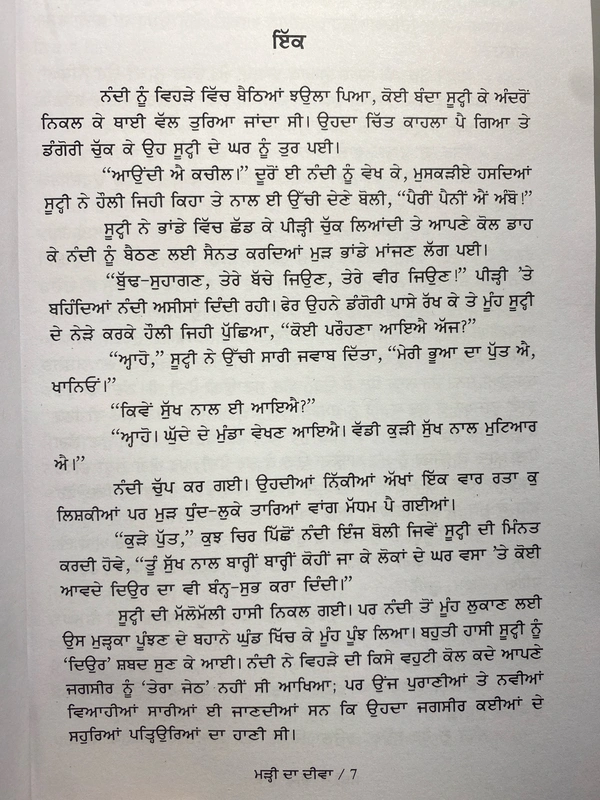 ਇੱਕ
ਨੰਦੀ ਨੂੰ ਵਿਹੜੇ ਵਿੱਚ ਬੈਠਿਆਂ ਝਉਲਾ ਪਿਆ, ਕੋਈ ਬੰਦਾ ਸੂਟ੍ਹੀ ਕੇ ਅੰਦਰੋਂ
ਨਿਕਲ ਕੇ ਥਾਈ ਵੱਲ ਤੁਰਿਆ ਜਾਂਦਾ ਸੀ। ਉਹਦਾ ਚਿੱਤ ਕਾਹਲਾ ਪੈ ਗਿਆ ਤੇ
ਡੰਗੋਰੀ ਚੁੱਕ ਕੇ ਉਹ ਸੂਟ੍ਹੀ ਦੇ ਘਰ ਨੂੰ ਤੁਰ ਪਈ।
“ਆਉਂਦੀ ਐ ਕਚੀਲ।” ਦੂਰੋਂ ਈ ਨੰਦੀ ਨੂੰ ਵੇਖ ਕੇ, ਮੁਸਕੜੀਏ ਹਸਦਿਆਂ
ਸੂਟ੍ਹੀ ਨੇ ਹੌਲੀ ਜਿਹੀ ਕਿਹਾ ਤੇ ਨਾਲ ਈ ਉੱਚੀ ਦੇਣੇ ਬੋਲੀ, “ਪੈਰੀਂ ਪੈਨੀਂ ਐਂ ਅੰਬੋ!”
ਸੂਟ੍ਹੀ ਨੇ ਭਾਂਡੇ ਵਿੱਚ ਛੱਡ ਕੇ ਪੀੜ੍ਹੀ ਚੁੱਕ ਲਿਆਂਦੀ ਤੇ ਆਪਣੇ ਕੋਲ ਡਾਹ
ਕੇ ਨੰਦੀ ਨੂੰ ਬੈਠਣ ਲਈ ਸੈਨਤ ਕਰਦਿਆਂ ਮੁੜ ਭਾਂਡੇ ਮਾਂਜਣ ਲੱਗ ਪਈ।
“ਬੁੱਢ-ਸੁਹਾਗਣ, ਤੇਰੇ ਬੱਚੇ ਜਿਉਣ, ਤੇਰੇ ਵੀਰ ਜਿਉਣ!” ਪੀੜ੍ਹੀ ’ਤੇ
ਬਹਿੰਦਿਆਂ ਨੰਦੀ ਅਸੀਸਾਂ ਦਿੰਦੀ ਰਹੀ। ਫੇਰ ਉਹਨੇ ਡੰਗੋਰੀ ਪਾਸੇ ਰੱਖ ਕੇ ਤੇ ਮੂੰਹ ਸੂਟ੍ਹੀ
ਦੇ ਨੇੜੇ ਕਰਕੇ ਹੌਲੀ ਜਿਹੀ ਪੁੱਛਿਆ, “ਕੋਈ ਪਰੌਹਣਾ ਆਇਐ ਅੱਜ?”
“ਆ੍ਹੋ,” ਸੂਟ੍ਹੀ ਨੇ ਉੱਚੀ ਸਾਰੀ ਜਵਾਬ ਦਿੱਤਾ, “ਮੇਰੀ ਭੂਆ ਦਾ ਪੁੱਤ ਐ,
ਖਾਨਿਓਂ।”
“ਕਿਵੇਂ ਸੁੱਖ ਨਾਲ ਈ ਆਇਐ?”
“ਆ੍ਹੋ। ਘੁੱਦੇ ਦੇ ਮੁੰਡਾ ਵੇਖਣ ਆਇਐ। ਵੱਡੀ ਕੁੜੀ ਸੁੱਖ ਨਾਲ ਮੁਟਿਆਰ
ਐ।”
ਨੰਦੀ ਚੁੱਪ ਕਰ ਗਈ। ਉਹਦੀਆਂ ਨਿੱਕੀਆਂ ਅੱਖਾਂ ਇੱਕ ਵਾਰ ਰਤਾ ਕੁ
ਲਿਸ਼ਕੀਆਂ ਪਰ ਮੁੜ ਧੁੰਦ-ਲੁਕੇ ਤਾਰਿਆਂ ਵਾਂਗ ਮੱਧਮ ਪੈ ਗਈਆਂ।
“ਕੁੜੇ ਪੁੱਤ,” ਕੁਝ ਚਿਰ ਪਿੱਛੋਂ ਨੰਦੀ ਇੰਜ ਬੋਲੀ ਜਿਵੇਂ ਸੂਟ੍ਹੀ ਦੀ ਮਿੰਨਤ
ਕਰਦੀ ਹੋਵੇ, “ਤੂੰ ਸੁੱਖ ਨਾਲ ਬਾਰ੍ਹੀਂ ਬਾਰ੍ਹੀਂ ਕੋਹੀਂ ਜਾ ਕੇ ਲੋਕਾਂ ਦੇ ਘਰ ਵਸਾ ’ਤੇ ਕੋਈ
ਆਵਦੇ ਦਿਉਰ ਦਾ ਵੀ ਬੰਨ੍ਹ-ਸੁਭ ਕਰਾ ਦਿੰਦੀ।”
ਸੂਟ੍ਹੀ ਦੀ ਮੱਲੋਮੱਲੀ ਹਾਸੀ ਨਿਕਲ ਗਈ। ਪਰ ਨੰਦੀ ਤੋਂ ਮੂੰਹ ਲੁਕਾਣ ਲਈ
ਉਸ ਮੁੜ੍ਹਕਾ ਪੂੰਝਣ ਦੇ ਬਹਾਨੇ ਘੁੰਡ ਖਿੱਚ ਕੇ ਮੂੰਹ ਪੂੰਝ ਲਿਆ। ਬਹੁਤੀ ਹਾਸੀ ਸੂਟ੍ਹੀ ਨੂੰ
‘ਦਿਉਰ’ ਸ਼ਬਦ ਸੁਣ ਕੇ ਆਈ। ਨੰਦੀ ਨੇ ਵਿਹੜੇ ਦੀ ਕਿਸੇ ਵਹੁਟੀ ਕੋਲ ਕਦੇ ਆਪਣੇ
ਜਗਸੀਰ ਨੂੰ ‘ਤੇਰਾ ਜੇਠ’ ਨਹੀਂ ਸੀ ਆਖਿਆ; ਪਰ ਉਂਜ ਪੁਰਾਣੀਆਂ ਤੇ ਨਵੀਆਂ
ਵਿਆਹੀਆਂ ਸਾਰੀਆਂ ਈ ਜਾਣਦੀਆਂ ਸਨ ਕਿ ਉਹਦਾ ਜਗਸੀਰ ਕਈਆਂ ਦੇ
ਸਹੁਰਿਆਂ ਪਤਿਉਰਿਆਂ ਦਾ ਹਾਣੀ ਸੀ।
ਮੜ੍ਹੀ ਦਾ ਦੀਵਾ / 7